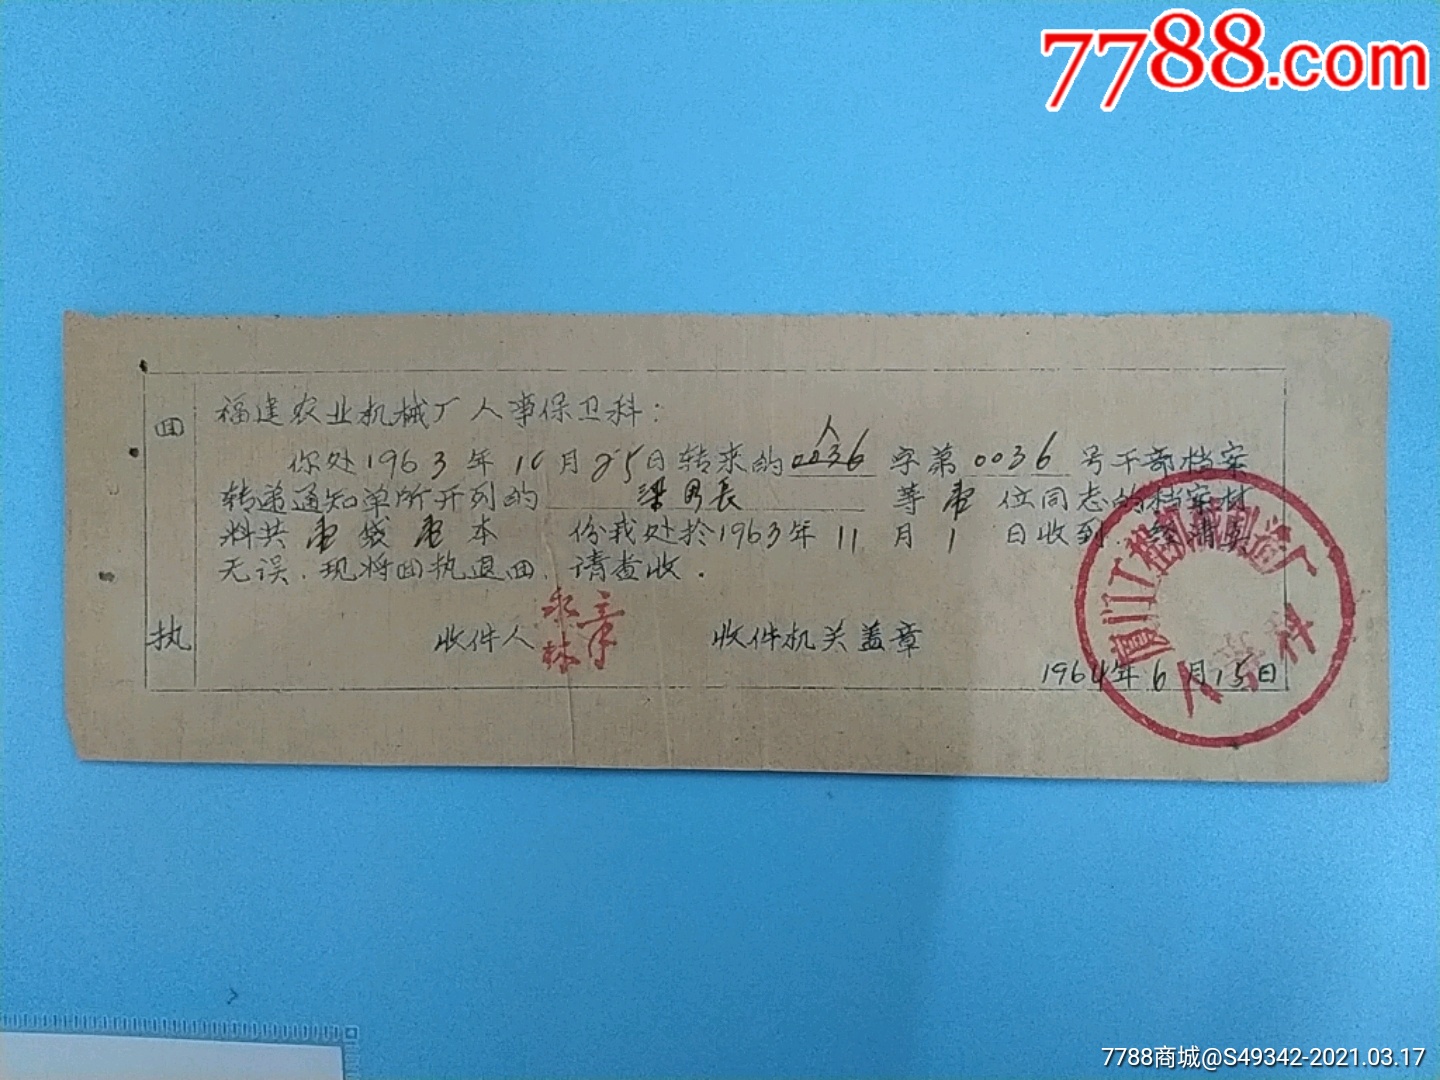 7788.com
回执
福建农业机械厂人事保卫科：
你处1963年10月25日转来的人0036字第0036号干部档案
转递通知单所开列的 等壹位同志的档案材
料共壹袋壹本 份我处於1963年11月1日收到 经清点
无误，现将回执退回，请查收．
收件人 收件机关盖章
厦门工程机械制造厂
人事科
1964年6月15日
7788商城@S49342-2021.03.17